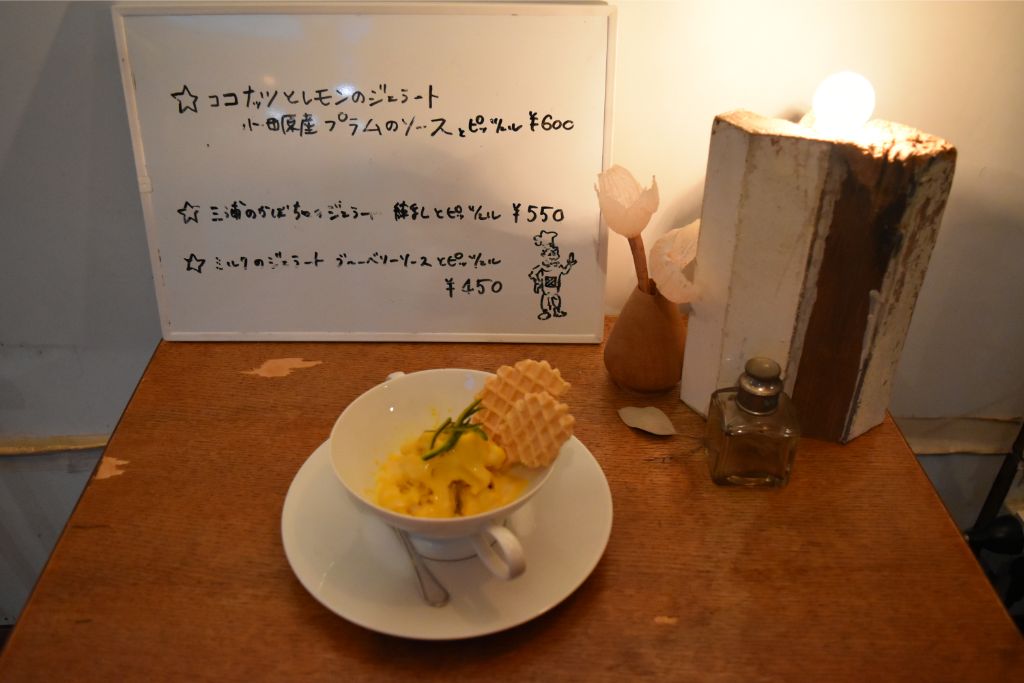 ☆ ココナッツとレモンのジェラート
小田原産プラムのソースとピッツェル ¥600
☆ 三浦のかぼちゃのジェラート 練乳とピッツェル ¥550
☆ ミルクのジェラート ブルーベリーソースとピッツェル
¥450